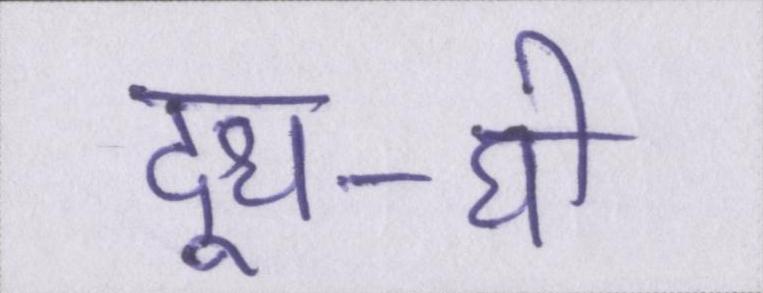 दूध-घी